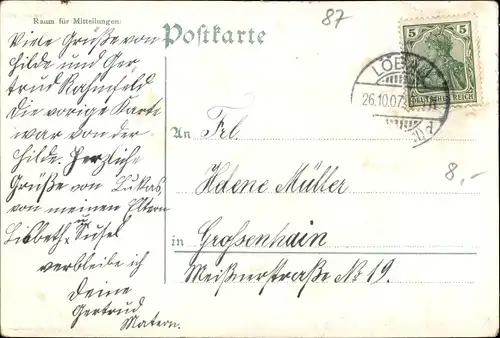 Raum für Mitteilungen:
87
Postkarte
5 5
DEUTSCHES REICH
LÖBAU
26.10.07.
Viele Grüße von
Hilde und Ger-
trud Rahnfeld
Die vorige Karte
war von der
Hilde. Herzliche
Grüße von Lukas,
von meinen Eltern
Lisbeth u. Susel
verbleibe ich
Deine
Gertrud
Matern.
An Frl.
Helene Müller
in Großenhain
Meißnerstraße No 19.
8,-